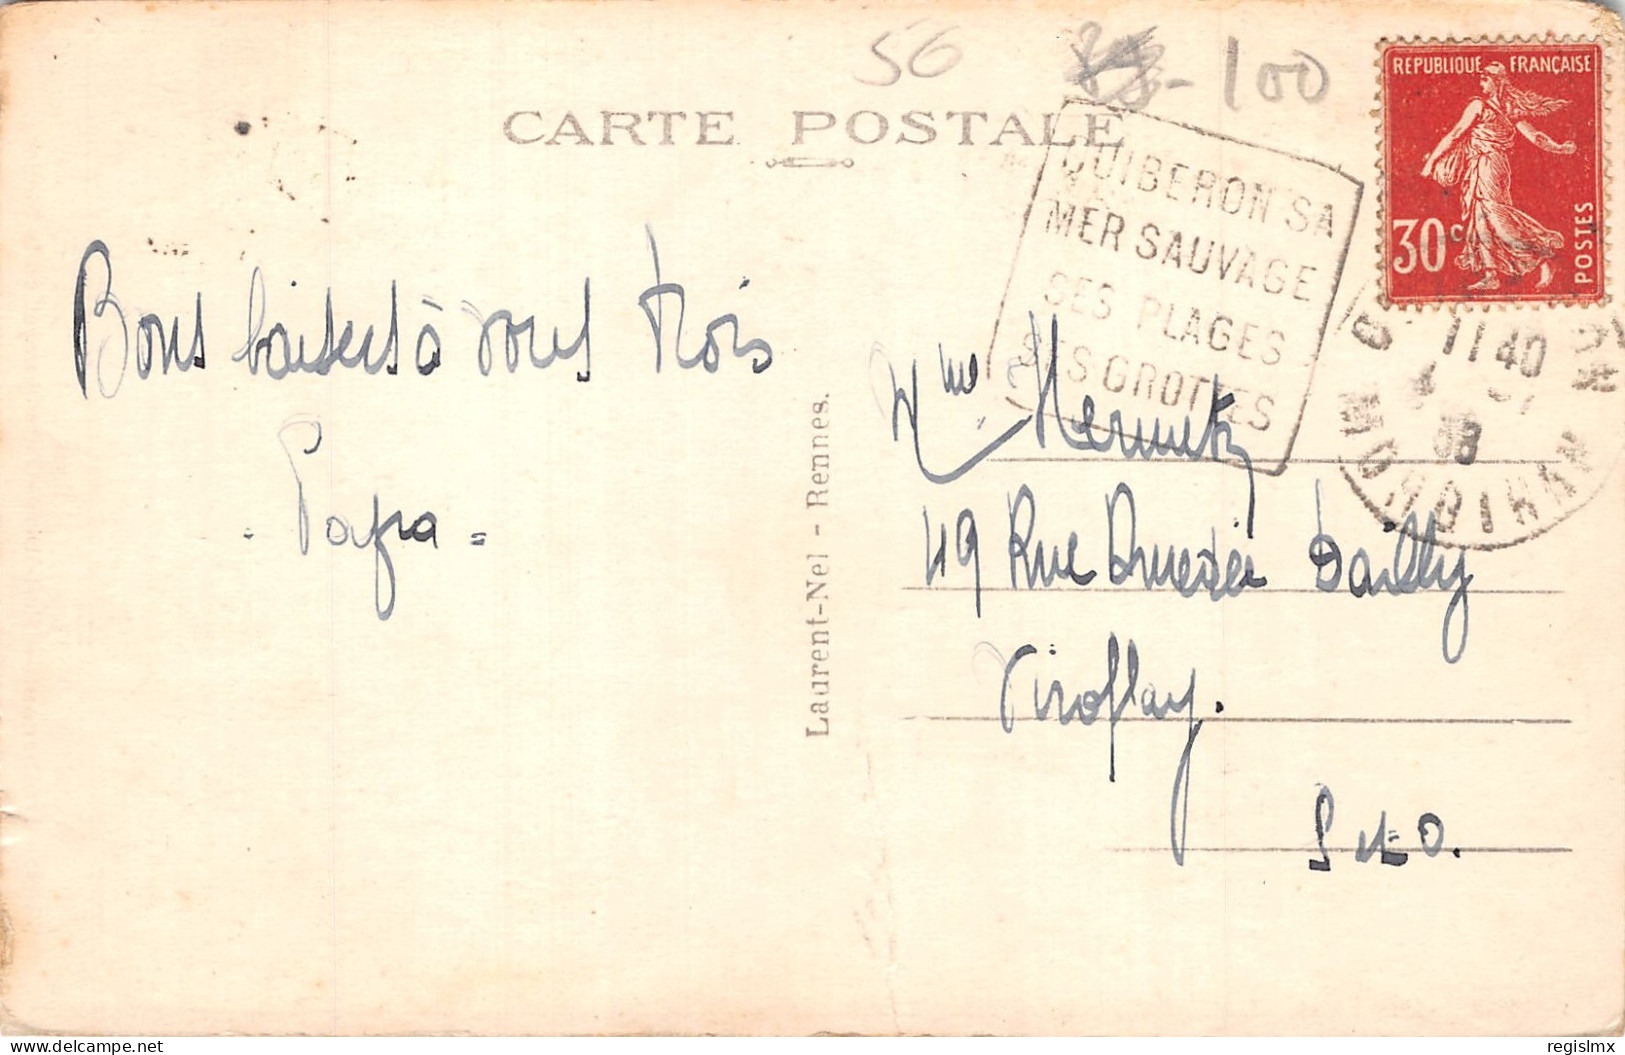 56 100
CARTE POSTALE
REPUBLIQUE FRANÇAISE
30c
POSTES
QUIBERON SA
MER SAUVAGE
SES PLAGES
SES GROTTES
11 40
38
MORBIHAN
Bons baisers à vous trois
- Papa =
Laurent-Nel - Rennes.
Mme
49 Rue Amédée Dailly
Viroflay.
S et O.
www.delcampe.net
regislmx